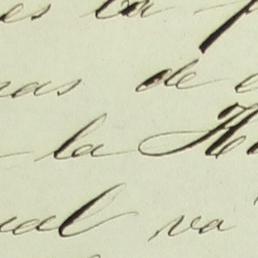 es la
nas de
la
ual va